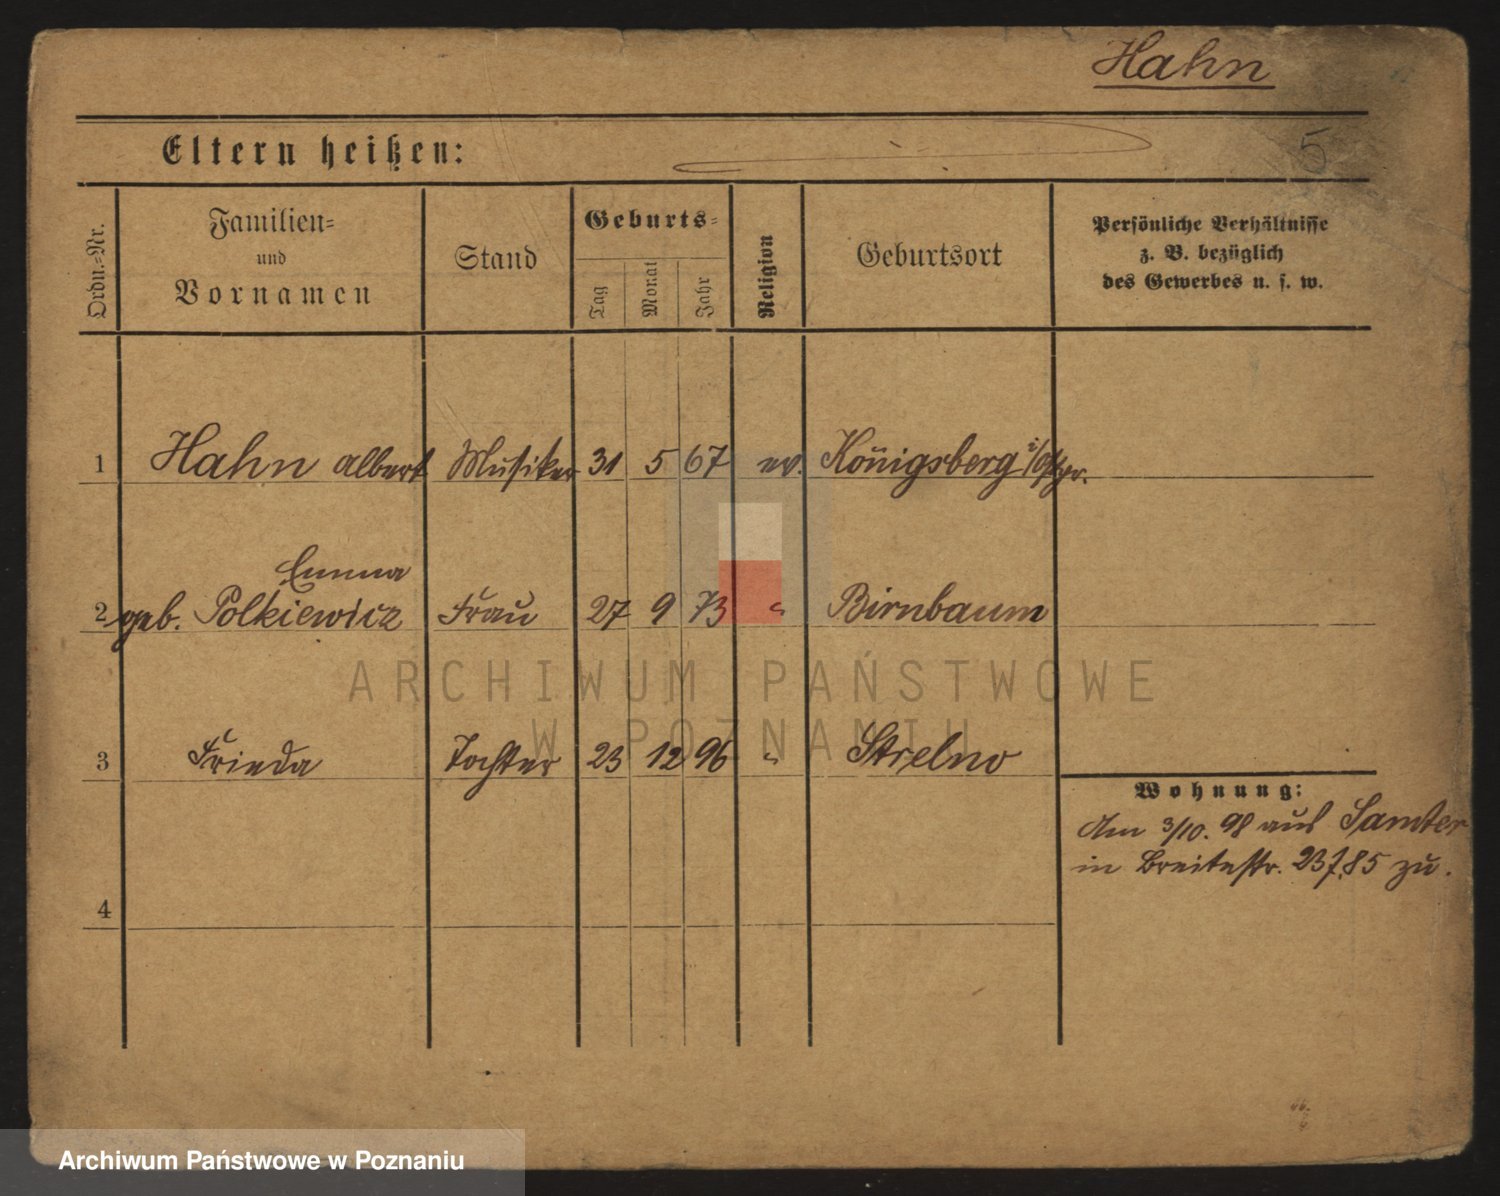 Hahn
5
Eltern heißen:
Ordn.-Nr.
Familien-
und
Vornamen
Stand
Geburts-
Tag
Monat
Jahr
Religion
Geburtsort
Persönliche Verhältnisse
z. B. bezüglich
des Gewerbes u. s. w.
1 Hahn Albert Musiker 31 5 67 ev. Königsberg i/Ostpr.
Emma
2 geb. Polkiewicz Frau 27 9 73 " Birnbaum
ARCHIWUM PAŃSTWOWE
W POZNANIU
3 Frieda Tochter 23 12 96 " Strelno
Wohnung:
Am 3/10. 98 aus Samter
in Breitestr. 23 7.85 zu.
4
Archiwum Państwowe w Poznaniu